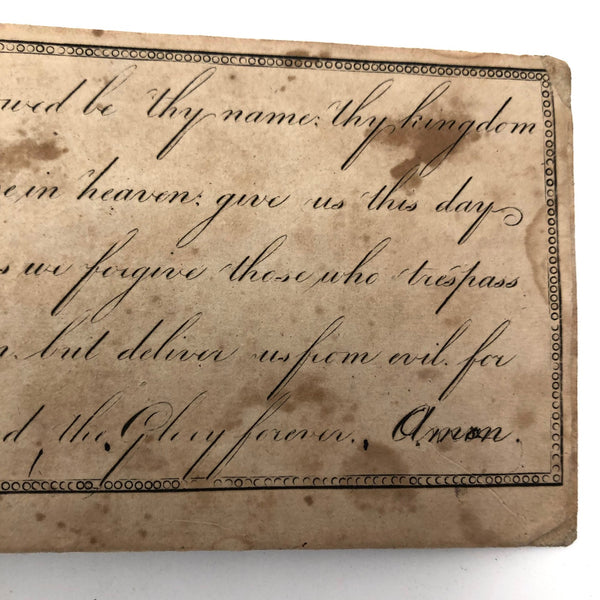 owed be thy name: thy kingdom
e, in heaven: give us this day
s we forgive those who trespass
n. but deliver us from evil. for
d the Glory forever. Amen.